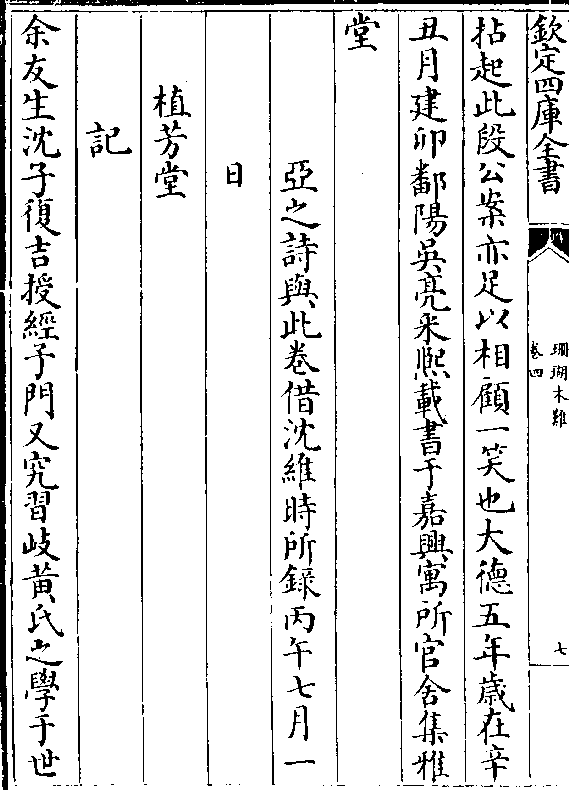 欽定四庫全書
珊瑚木難
卷四
七
拈起此段公案亦足以相顧一笑也大德五年歲在辛
丑月建卯鄱陽吳亮采熈載書于嘉興寓所官舍集雅
堂
亞之詩與此卷借沈維時所錄丙午七月一
日
植芳堂
記
余友生沈子復吉授經子門又究習歧黃氏之學于世